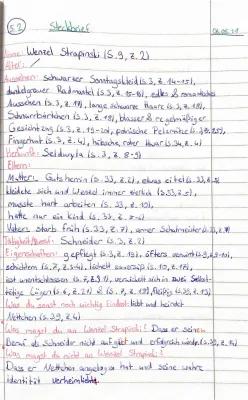 S.2 Steckbrief 06.05.21
Name: Wenzel Strapinski (S.9, Z.2)
Alter:
Aussehen: schwarzer Sonntagskleid (S.3, Z.14-15),
dunkelgrauer Radmantel (S.3, Z.15-18), edles & romantisches
Aussehen (S.3, Z.18), lange schwarze Haare (S.3, Z.18),
Schnurrbärtchen (S.3, Z.19), blasser & regelmäßiger
Gesichtzug (S.3, Z.19-20), polnische Pelzmütze
Fingerhut (S.3, Z.4), hübsche, roter Haar (S.34, Z.4)
Herkunft: Seldwyla (S.3, Z.8-9)
Eltern:
Mutter: Gutsherrin (S.33, Z.2), etwas eitel (S.33, Z.5)
kleidete sich und Wenzel immer zierlich (S.33, Z.5),
musste hart arbeiten (S.33, Z.10),
hatte nur ein Kind
Vater: starb früh (S.33, Z.7), armer Schulmeister
Tätigkeit/Beruf: Schneider (S.3, Z.2)
Eigenschaften: gepflegt (S.3, Z.19), öfters
schüchtern (S.7, Z.3-4), lächelt
ist unentschlossen (S.7, Z.3), verwickelt sich in zwei Selbst-
tätige Lügen (S.6, Z.2), fleißig
Was du sonst noch wichtig findest: liebt und heiratet
Nettchen (S.39, Z.4)
Was magst du an Wenzel Strapinski: Dass er seinen
Beruf als Schneider nicht aufgibt und erfolgreich wird
Was magst du nicht an Wenzel Strapinski:
Dass er Nettchen angelogen hat und seine wahre
identität verheimlicht.